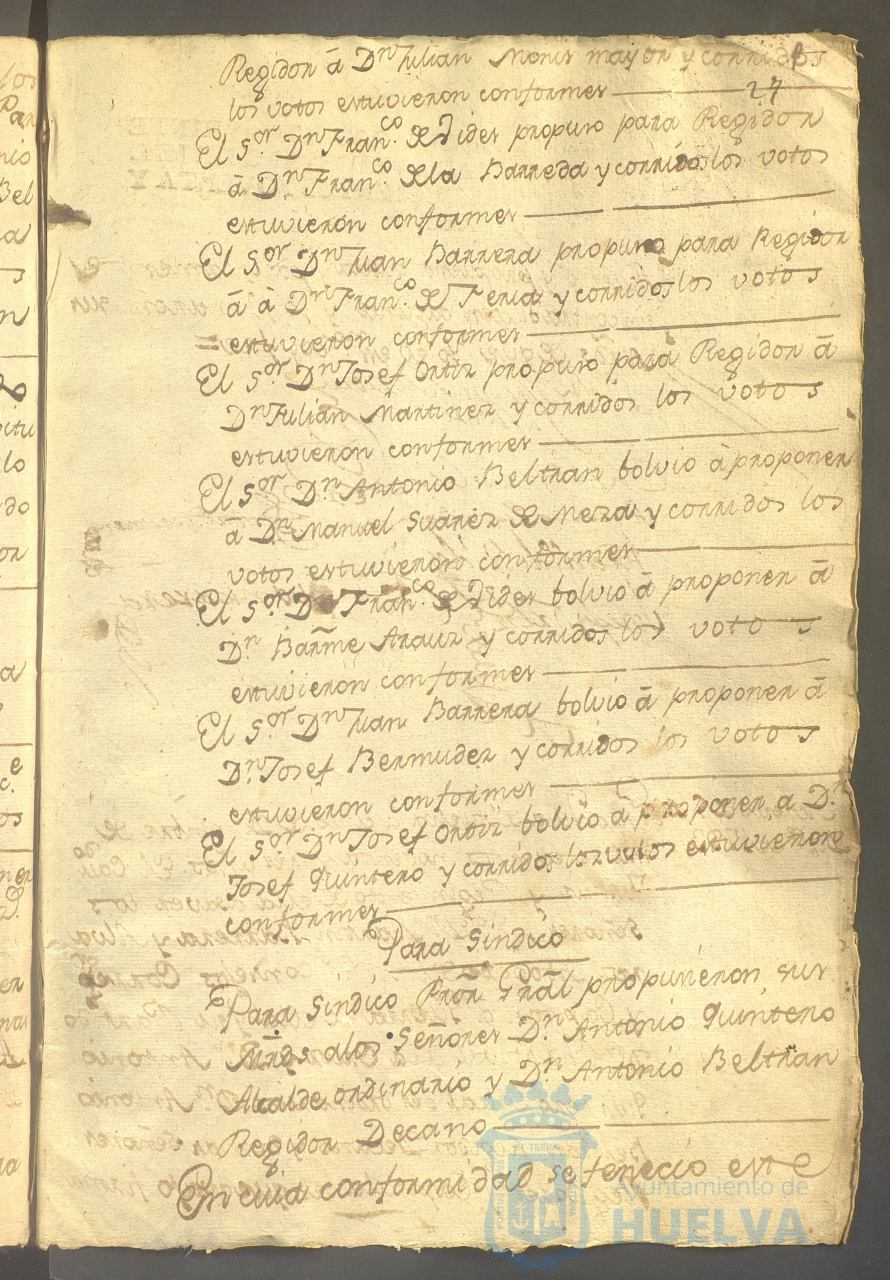 Regidor â Dn Julian Monis mayor y corridos
27
los votos estuvieron conformes
El Sor Dn Franco de Dies propuso para Regidor
â Dn Franco de la Barreda y corridos los votos
estuvieron conformes
El Sor Dn Juan Barrera propuso para Regidor
â â Dn Franco de Feria y corridos los votos
estuvieron conformes
El Sor Dn Josef Ortiz propuso para Regidor â
Dn Julian Martinez y corridos los votos
estuvieron conformes
El Sor Dn Antonio Beltran bolvio â proponer
â Dn Manuel Suarez de Meza y corridos los
votos estuvieron conformes
El Sor Dn Franco de Dies bolvio â proponer â
Dn Barme Arauz y corridos los votos
estuvieron conformes
El Sor Dn Juan Barrera bolvio â proponer â
Dn Josef Bermudez y corridos los votos
estuvieron conformes
El Sor Dn Josef Ortiz bolvio â proponer a Dn
Josef Quintero y corridos los votos estuvieron
conformes
Para Sindico
Para Sindico Pror Gral propusieron sus
Mrds a los Señores Dn Antonio Quintero
Alcalde ordinario y Dn Antonio Beltran
Regidor Decano
En cuia conformidad se fenecio este
Ayuntamiento de
HUELVA